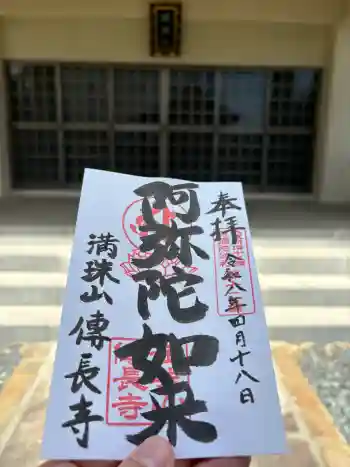 奉拝
令和八年四月十八日
阿弥陀如来
満珠山傳長寺
傳長寺